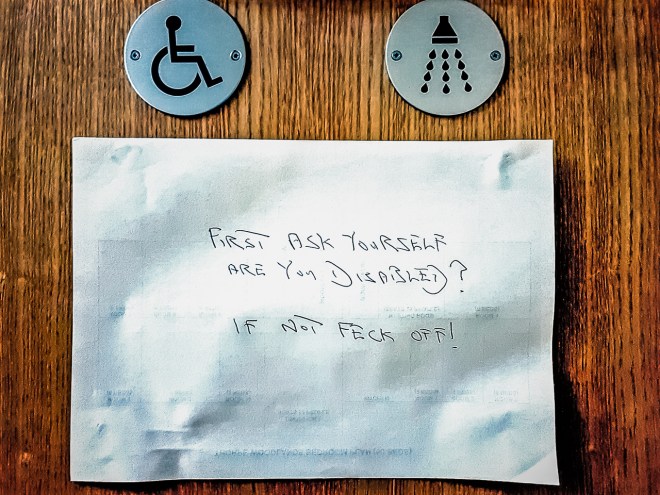 FIRST ASK YOURSELF
ARE YOU DISABLED?
IF NOT FECK OFF!